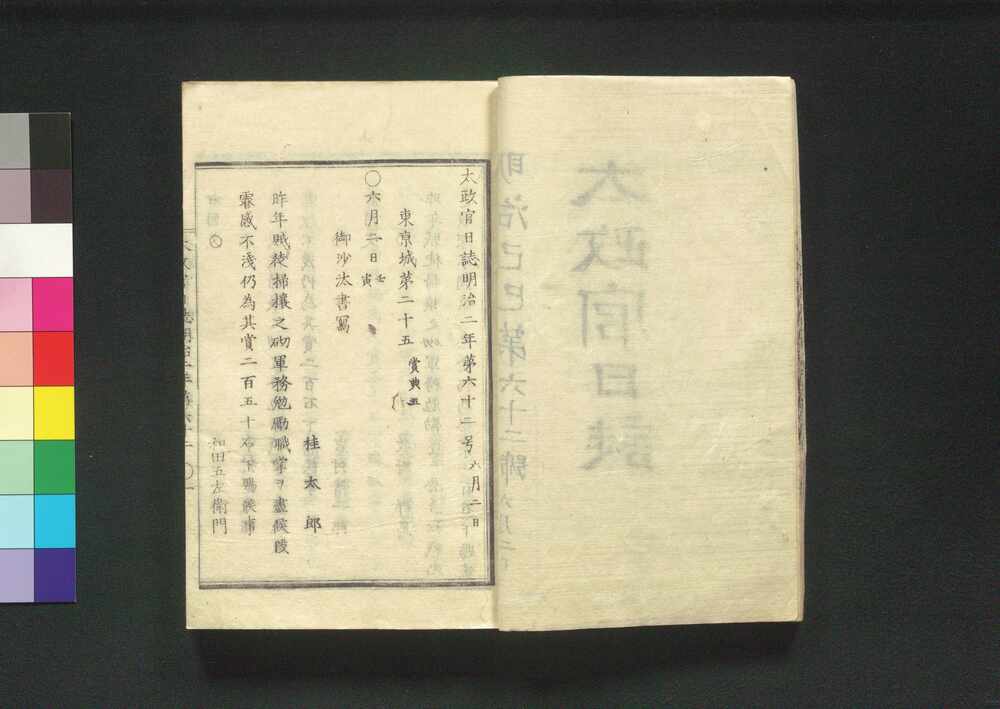 太政官日誌明治二年第六十二号六月二日
東京城第二十五 賞典五
〇六月二日 壬寅
御沙汰書寫
桂太郎
昨年賊徒掃攘之砌軍務勉勵職掌ヲ盡候段
叡感不淺仍為其賞二百五十石下賜候事
和田五左衛門
太政官日誌
明治己巳第六十二號 六月二日